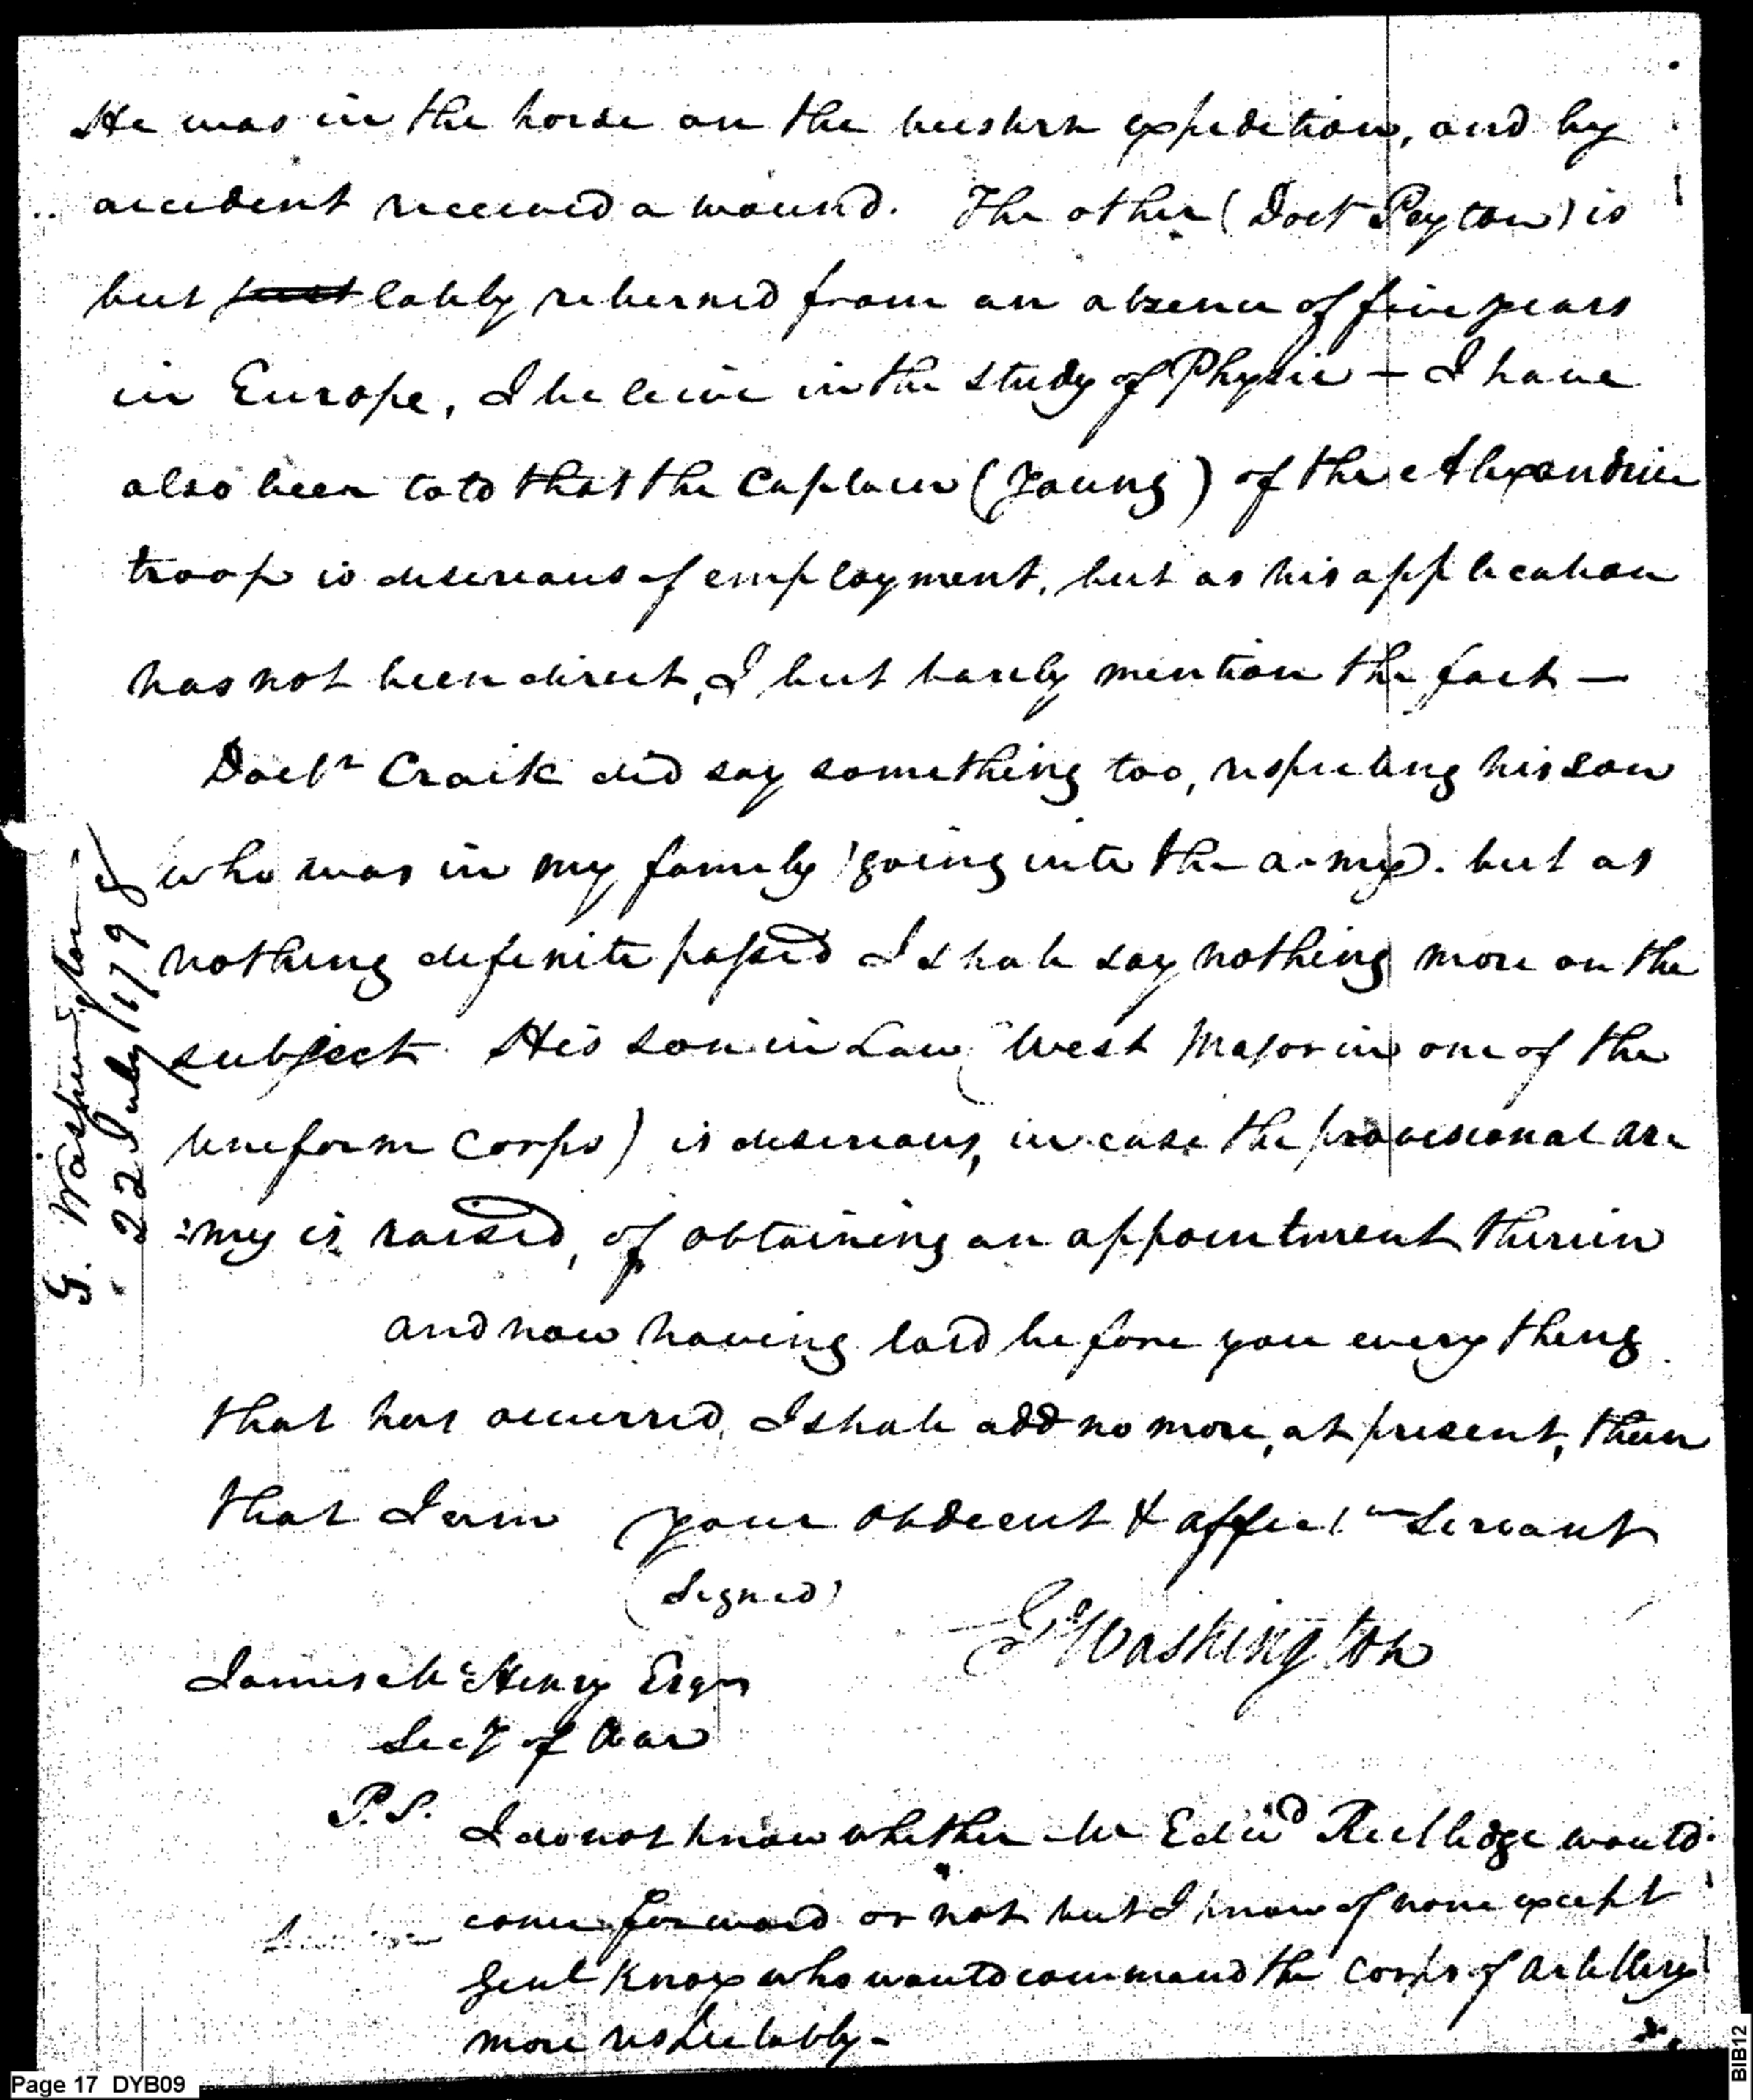 He was in the horse on the western expedition, and by
accident received a wound. The other (Doctr Peyton) is
but just lately returned from an absence of five years
in Europe, I believe in the study of Physic — I have
also been told that the Captain (Young) of the Alexandria
troop is desireous of employment, but as his application
has not been direct, I but barely mention the fact —
Doctr Craik did say something too, respecting his son
who was in my family going into the army. but as
nothing definite passed I shall say nothing more on the
subject. His son in Law (West Major in one of the
uniform Corps) is desireous, in case the provisional ar-
:my is raised, of obtaining an appointment therein
and now having laid before you every thing
that has occurred, I shall add no more, at present, than
that I am your obdeent & affect servant
(signed)
Go Washington
James McHenry Esqr
Secy of War
P.S.
I do not know whether Mr Edwd Rutledge would
come forward or not but I know of none except
Genl Knox who would command the Corps of Artillery
more respectably -
G. Washington
22 July 1798
Page 17 DYB09
BIB12